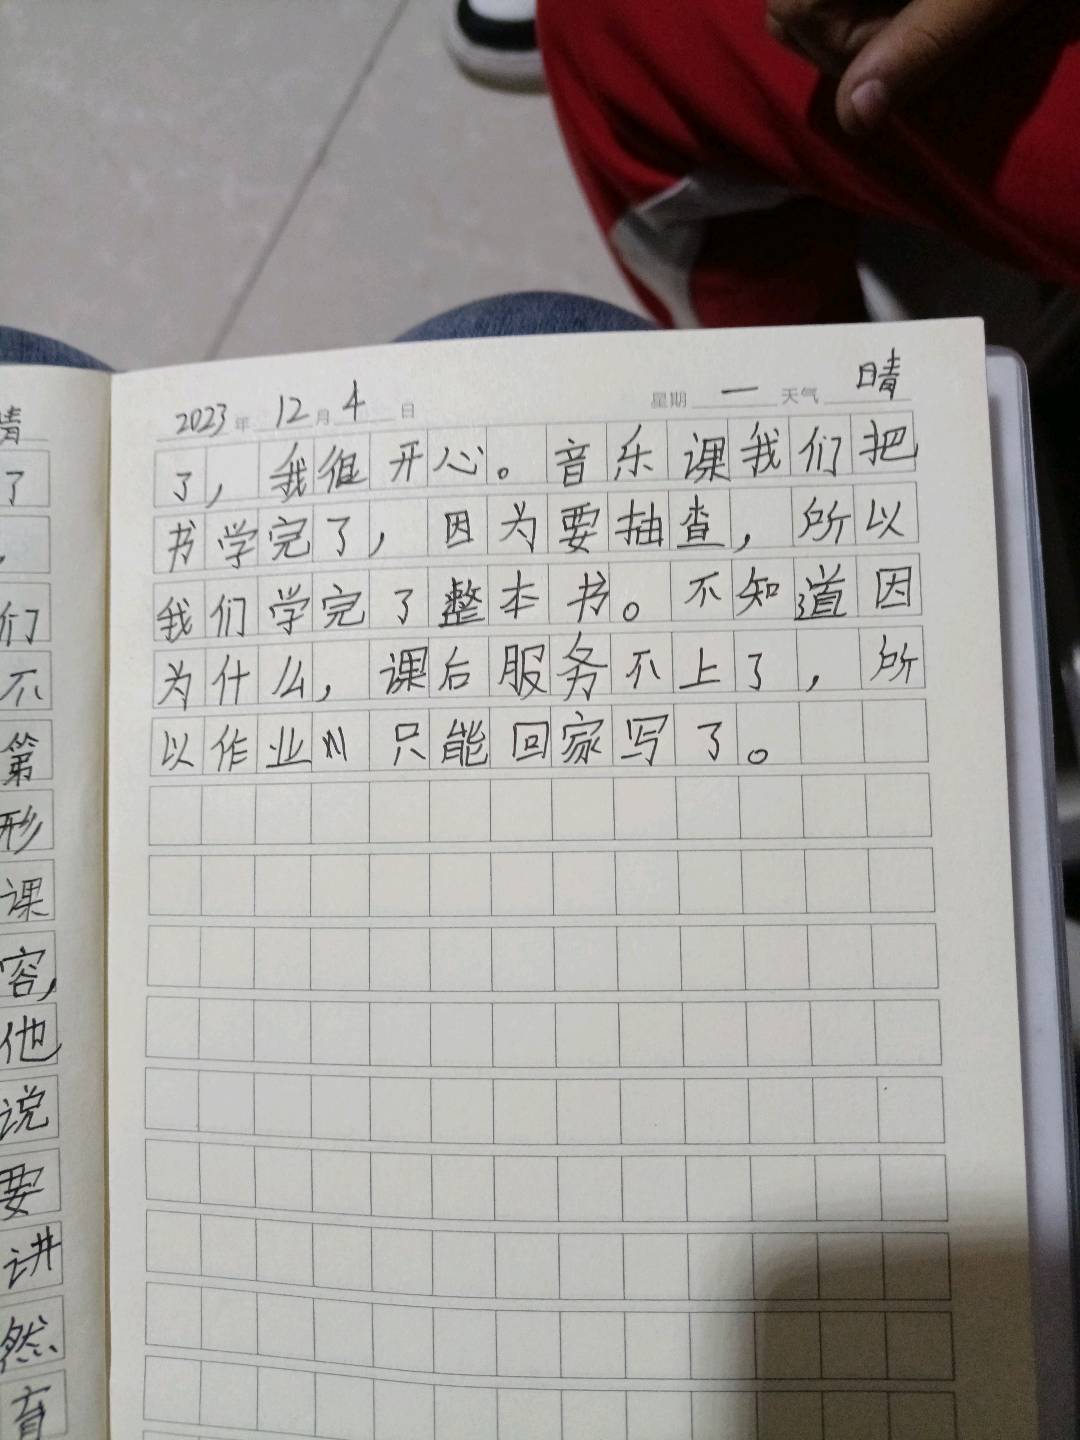 晴
了
，
们
不
第
形
课
容，
他
说
要
讲
然
育
2023年 12月 4日 星期 一 天气 晴
了，我很开心。音乐课我们把
书学完了，因为要抽查，所以
我们学完了整本书。不知道因
为什么，课后服务不上了，所
以作业 只能回家写了。